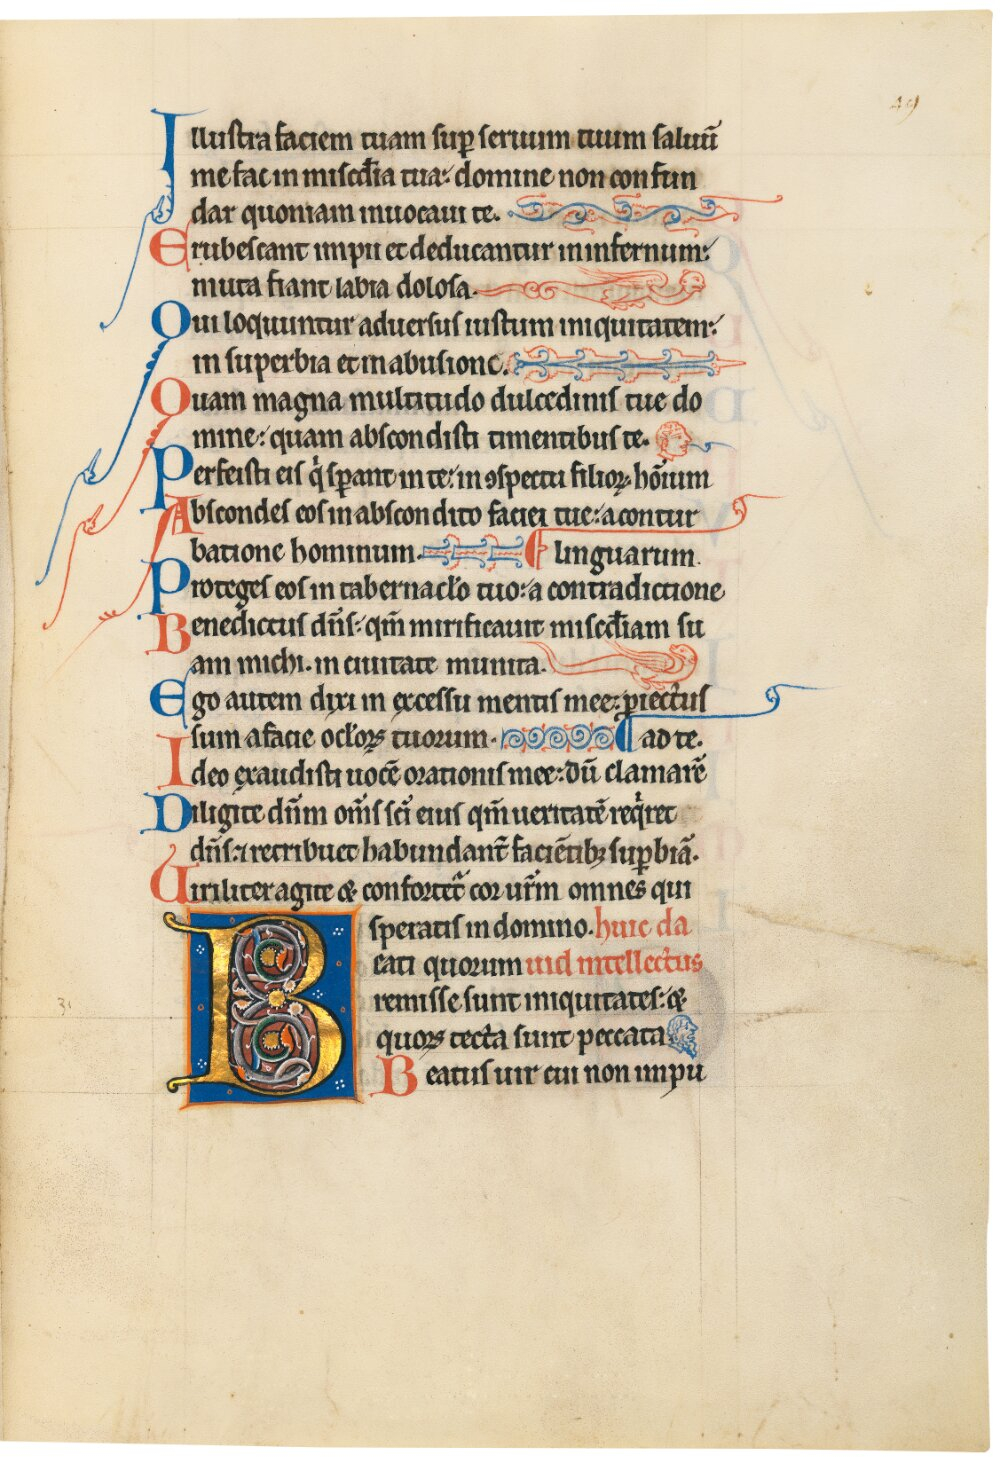 49
Illustra faciem tuam sup̲ seruum tuum saluū
me fac in misc̄dia tua: domine non confun
dar quoniam inuocaui te.
Erubescant impii et deducantur in infernum:
muta fiant labia dolosa.
Qui loquuntur aduersus iustum iniquitatem:
in superbia et in abusione.
Quam magna multitudo dulcedinis tue do
mine: quam abscondisti timentibus te.
Perfeisti eis q̇ sꝑant in te: in ꝯspectu filioꝝ hōium
Abscondes eos in abscondito faciei tue: a contur
batione hominum. linguarum.
Proteges eos in tabernac̄lo tuo: a contradictione
Benedictus dn̄s: qm̄ mirificauit misc̄diam su
am michi. in ciuitate munita.
Ego autem dixi in excessu mentis mee: ꝓiectus
sum a facie oc̄loꝝ tuorum. ad te.
Ideo exaudisti uocē orationis mee: dū clamarē
Diligite dn̄m om̄s sc̄i eius qm̄ ueritatē req̇ret
dn̄s: ⁊ retribuet habundant̄ faciētibꝫ suꝑbiā.
Uiriliter agite & confortet᷑ cor ur̄m omnes qui
speratis in domino. huic da
Beati quorum uid intellectus
remisse sunt iniquitates: &
quoꝝ tecta sunt peccata
Beatus uir cui non impu